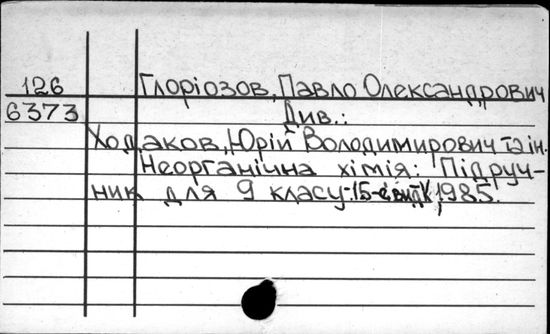 126 Глоріозов, Павло Олександрович
6373 Див.:
Ходаков, Юрій Володимирович та ін.
Неорганічна хімія: Підруч-
ник для 9 класу.-15-е вид. К., 1985.